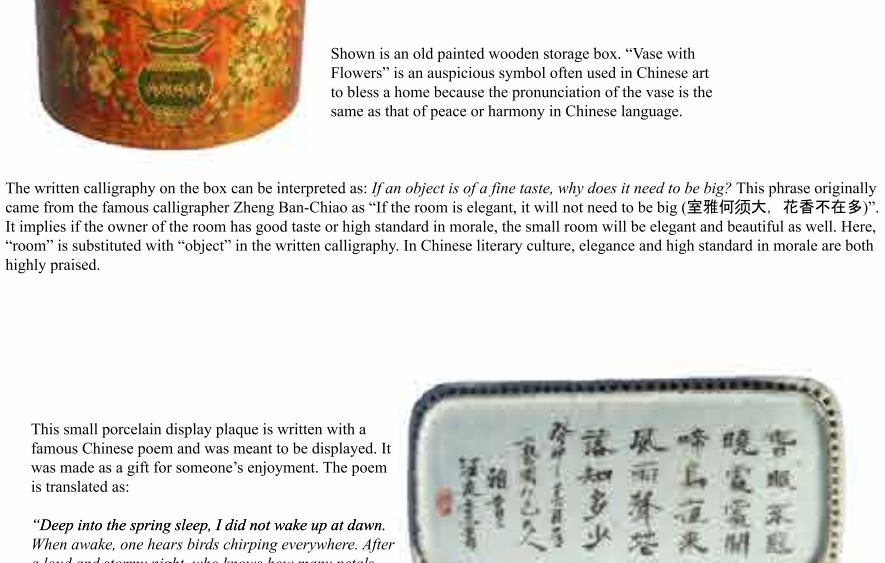 Shown is an old painted wooden storage box. “Vase with
Flowers” is an auspicious symbol often used in Chinese art
to bless a home because the pronunciation of the vase is the
same as that of peace or harmony in Chinese language.
The written calligraphy on the box can be interpreted as: If an object is of a fine taste, why does it need to be big? This phrase originally
came from the famous calligrapher Zheng Ban-Chiao as “If the room is elegant, it will not need to be big (室雅何须大，花香不在多)”.
It implies if the owner of the room has good taste or high standard in morale, the small room will be elegant and beautiful as well. Here,
“room” is substituted with “object” in the written calligraphy. In Chinese literary culture, elegance and high standard in morale are both
highly praised.
This small porcelain display plaque is written with a
famous Chinese poem and was meant to be displayed. It
was made as a gift for someone’s enjoyment. The poem
is translated as:
“Deep into the spring sleep, I did not wake up at dawn.
When awake, one hears birds chirping everywhere. After
a loud and stormy night, who knows how many petals
春眠不覺
曉處處聞
啼鳥夜來
風雨聲花
落知多少